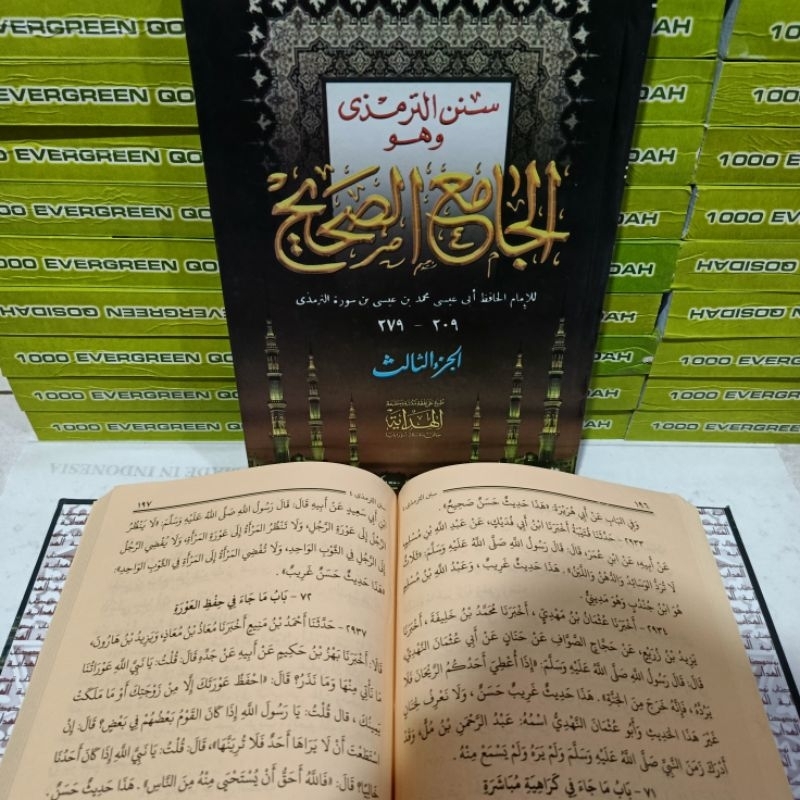 EVERGREEN QOS
EVERGREEN QO
1000 EVERGREEN QO
1000 EVERGREEN
1000 EVERGREEN
1000 EVERGREEN
1000 EVERGREEN
1000 EVERGREEN
DAH
DAH
1000 EV
1000 EVER
1000 EVERG
1000 EVERGREEN QOSIDAH
سنن الترمذى
وهو
الجامع الصحيح
للإمام الحافظ أبى عيسى محمد بن عيسى بن سورة الترمذى
٢٠٩ - ٢٧٩
الجزء الثالث
الهداية
MADE IN INDONESIA
١٩٦
سنن الترمذى ٤
وَفِى الْبَابِ عَنْ أَبِى هُرَيْرَةَ. «هَذَا حَدِيثٌ حَسَنٌ صَحِيحٌ».
٢٩٣٣ - حَدَّثَنَا قُتَيْبَةُ أَخْبَرَنَا ابْنُ أَبِى فُدَيْكٍ، عَنْ عَبْدِ اللهِ بْنِ مُسْلِمٍ
عَنْ أَبِيهِ، عَنِ ابْنِ عُمَرَ، قَالَ: قَالَ رَسُولُ اللهِ صَلَّى اللهُ عَلَيْهِ وَسَلَّمَ: «ثَلَاثٌ
لَا تُرَدُّ الْوَسَائِدُ وَالدُّهْنُ وَاللَّبَنُ». هَذَا حَدِيثٌ غَرِيبٌ، وَعَبْدُ اللهِ بْنُ مُسْلِمٍ
هُوَ ابْنُ جُنْدُبٍ وَهُوَ مَدِينِىٌّ.
٢٩٣٤ - أَخْبَرَنَا عُثْمَانُ بْنُ مَهْدِىٍّ، أَخْبَرَنَا مُحَمَّدُ بْنُ خَلِيفَةَ، أَخْبَرَنَا
يَزِيدُ بْنُ زُرَيْعٍ، عَنْ حَجَّاجٍ الصَّوَّافِ عَنْ حَنَانٍ عَنْ أَبِى عُثْمَانَ النَّهْدِىِّ،
قَالَ: قَالَ رَسُولُ اللهِ صَلَّى اللهُ عَلَيْهِ وَسَلَّمَ: «إِذَا أُعْطِىَ أَحَدُكُمُ الرَّيْحَانَ فَلَا
يَرُدَّهُ، فَإِنَّهُ خَرَجَ مِنَ الْجَنَّةِ». هَذَا حَدِيثٌ غَرِيبٌ حَسَنٌ، وَلَا نَعْرِفُ لِحَنَانٍ
غَيْرَ هَذَا الْحَدِيثِ وَأَبُو عُثْمَانَ النَّهْدِىُّ اسْمُهُ: عَبْدُ الرَّحْمَنِ بْنُ مُلٍّ، وَقَدْ
أَدْرَكَ زَمَنَ النَّبِىِّ صَلَّى اللهُ عَلَيْهِ وَسَلَّمَ وَلَمْ يَرَهُ وَلَمْ يَسْمَعْ مِنْهُ.
٧١ - بَابُ مَا جَاءَ فِى كَرَاهِيَةِ مُبَاشَرَةِ
سنن الترمذى ٤
١٩٧
ابْنِ أَبِى سَعِيدٍ عَنْ أَبِيهِ قَالَ: قَالَ رَسُولُ اللهِ صَلَّى اللهُ عَلَيْهِ وَسَلَّمَ: «لَا يَنْظُرُ
الرَّجُلُ إِلَى عَوْرَةِ الرَّجُلِ، وَلَا تَنْظُرُ الْمَرْأَةُ إِلَى عَوْرَةِ الْمَرْأَةِ، وَلَا يُفْضِى الرَّجُلُ
إِلَى الرَّجُلِ فِى الثَّوْبِ الْوَاحِدِ، وَلَا تُفْضِى الْمَرْأَةُ إِلَى الْمَرْأَةِ فِى الثَّوْبِ الْوَاحِدِ».
«هَذَا حَدِيثٌ حَسَنٌ غَرِيبٌ».
٧٢ - بَابُ مَا جَاءَ فِى حِفْظِ الْعَوْرَةِ
٢٩٣٧ - حَدَّثَنَا أَحْمَدُ بْنُ مَنِيعٍ أَخْبَرَنَا مُعَاذُ بْنُ مُعَاذٍ، وَيَزِيدُ بْنُ هَارُونَ،
قَالَا: أَخْبَرَنَا بَهْزُ بْنُ حَكِيمٍ عَنْ أَبِيهِ عَنْ جَدِّهِ قَالَ: قُلْتُ: يَا نَبِىَّ اللهِ عَوْرَاتُنَا
مَا نَأْتِى مِنْهَا وَمَا نَذَرُ؟ قَالَ: «احْفَظْ عَوْرَتَكَ إِلَّا مِنْ زَوْجَتِكَ أَوْ مَا مَلَكَتْ
يَمِينُكَ، قَالَ قُلْتُ: يَا رَسُولَ اللهِ إِذَا كَانَ الْقَوْمُ بَعْضُهُمْ فِى بَعْضٍ؟ قَالَ: إِنِ
اسْتَطَعْتَ أَنْ لَا يَرَاهَا أَحَدٌ فَلَا تُرِيَنَّهَا»، قَالَ: قُلْتُ: يَا نَبِىَّ اللهِ إِذَا كَانَ أَحَدُنَا
خَالِيًا؟ قَالَ: «فَاللهُ أَحَقُّ أَنْ يُسْتَحْيَى مِنْهُ مِنَ النَّاسِ». هَذَا حَدِيثٌ حَسَنٌ.